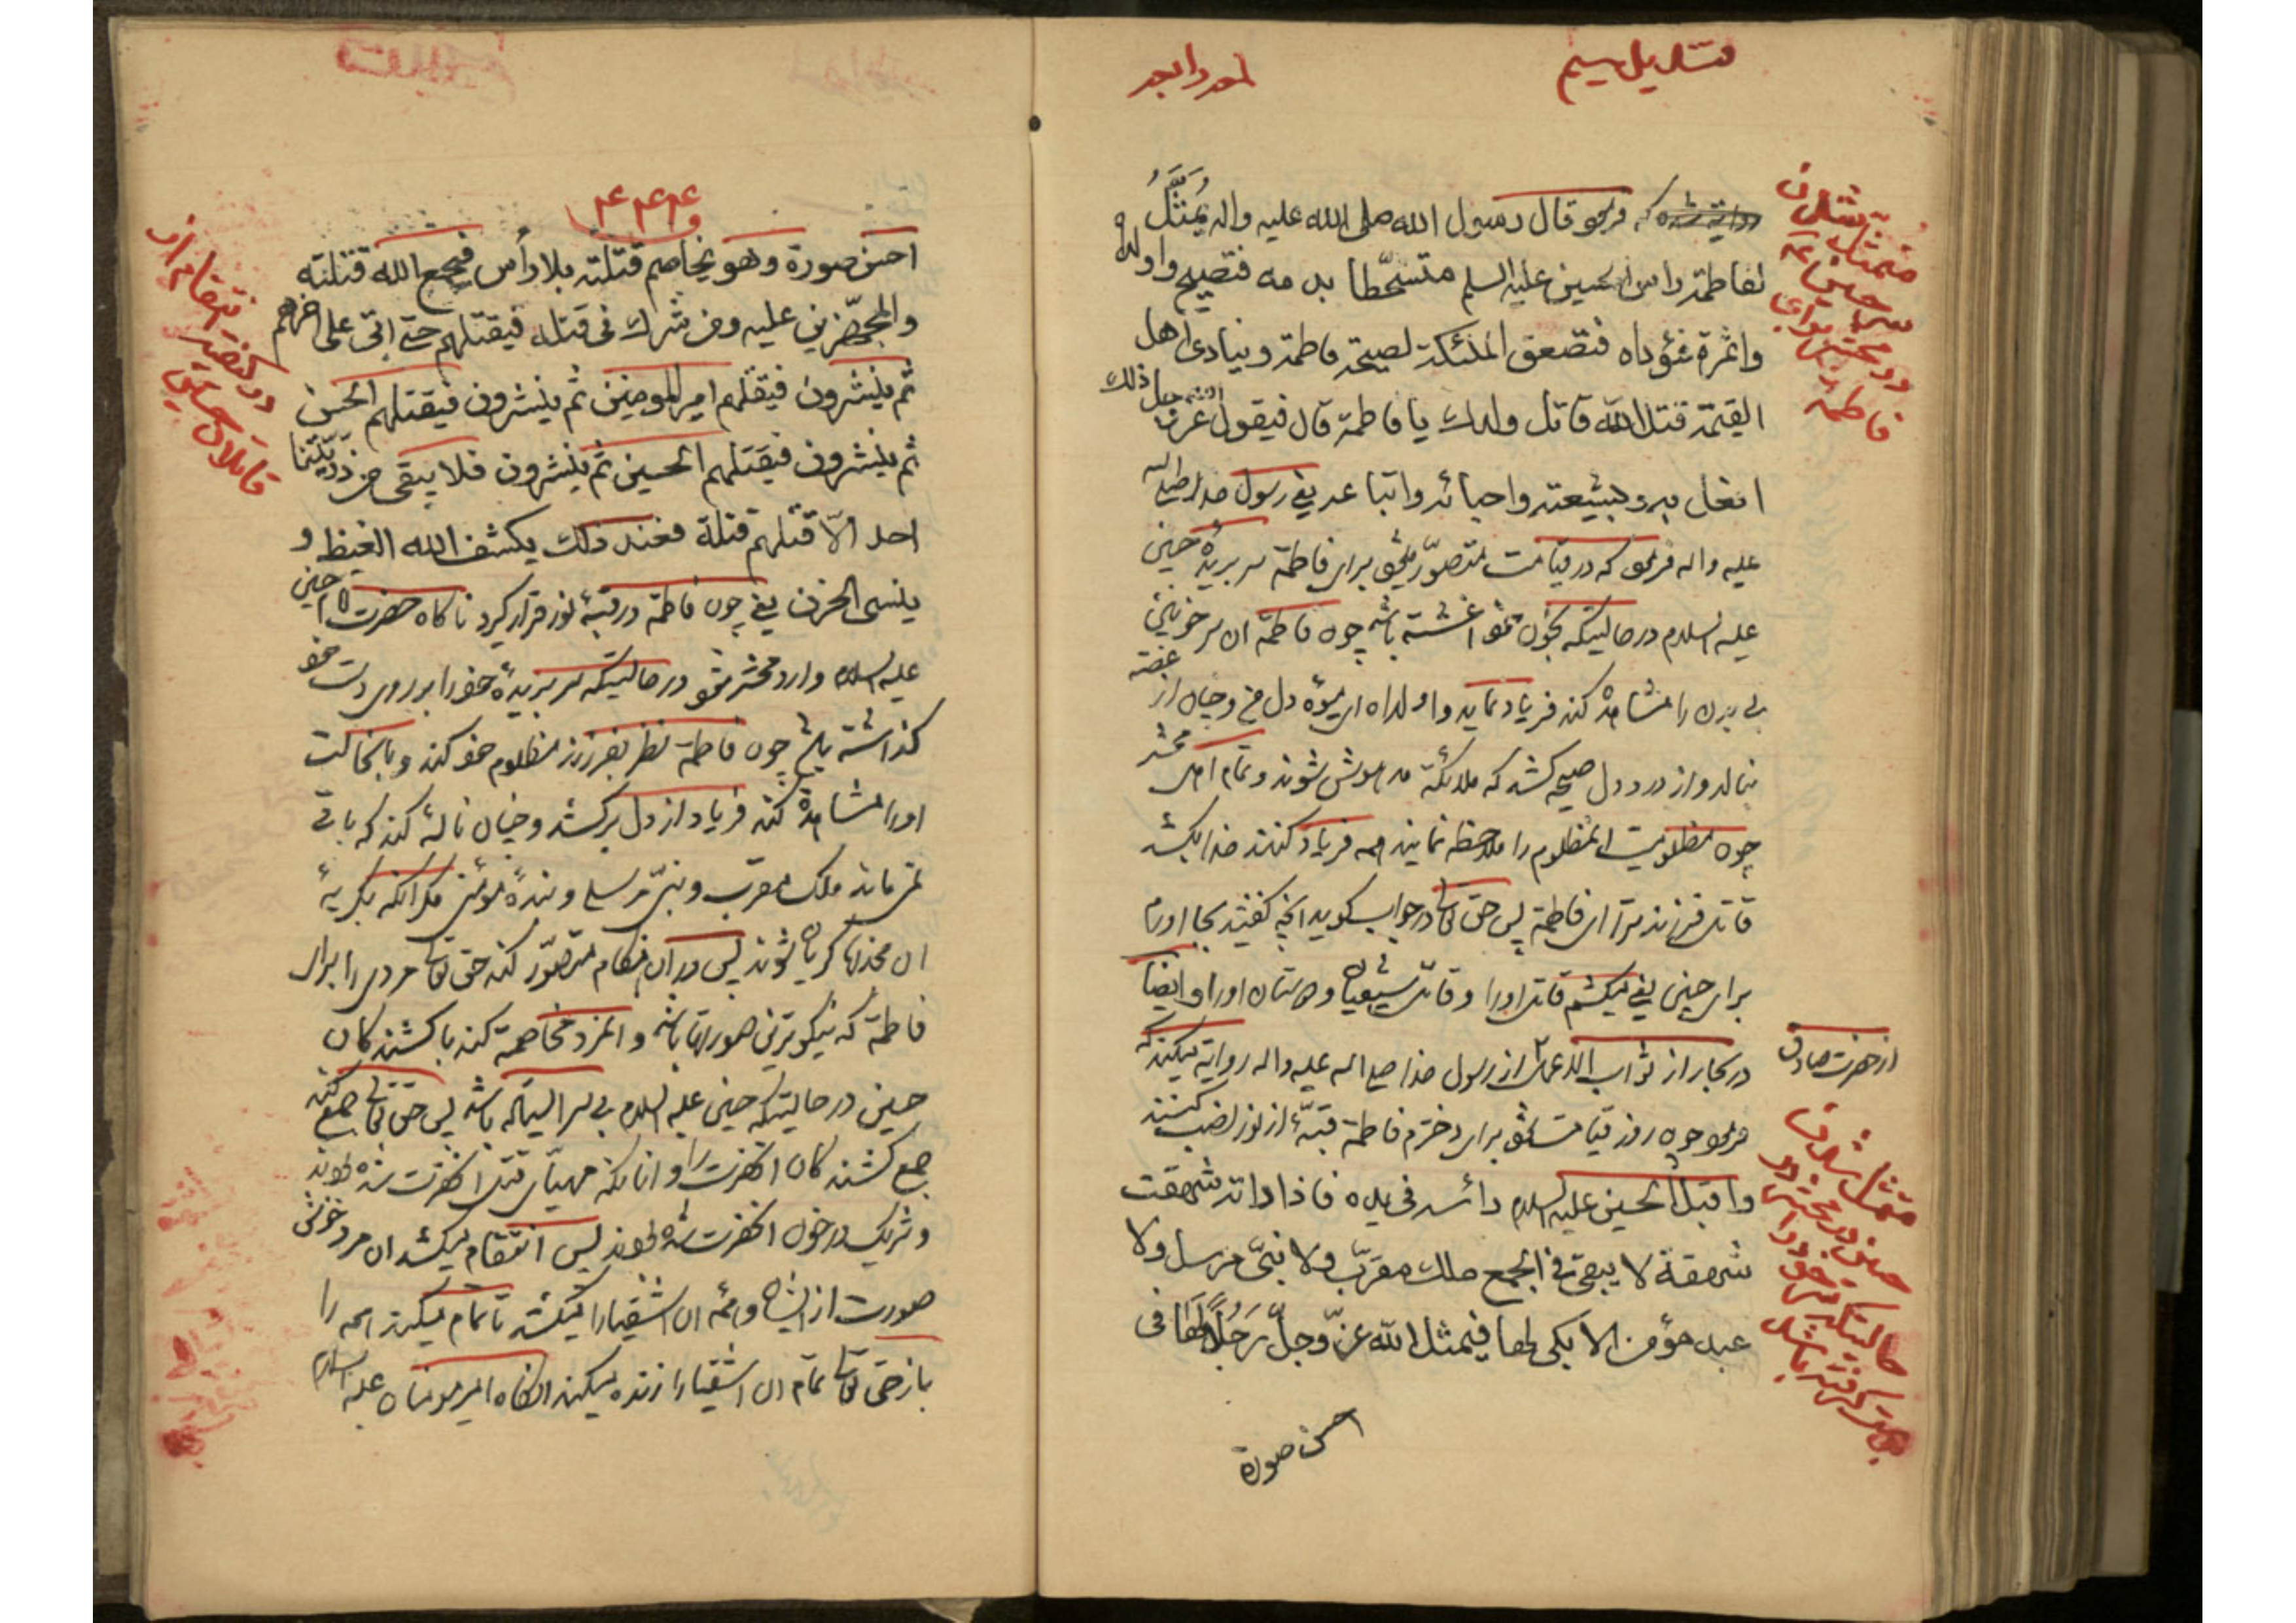 قندیل سیم
روایة شده که فرمود قال رسول الله صلی الله علیه واله یُمَثَّلُ
لفاطمة راس الحسین علیه السلم متشحّطا بدمه فتصیح وا ولداه
واثمرة فؤداه فتصعق الملئکة لصیحة فاطمة وینادی اهل
القیمة قتل الله قاتل ولدك یا فاطمة قال فیقول الله عز وجل ذلك
افعل به وبشیعته واحبائه واتباعه یعنی رسول خدا صلی الله
علیه واله فرمود که در قیامت متصوّر میشود برای فاطمة سر بریدهٔ حسین
علیه السلام در حالتیکه بخون خود اغشته باشد چون فاطمة ان سر خونین
بی بدن را مشاهده کند فریاد نماید وا ولداه ای میوهٔ دل من و چنان از غصّه
بنالد و از درد دل صیحه کشد که ملائکة مدهوش شوند و تمام اهل محشر
چون مظلومیت المظلوم را ملاحظه نمایند همه فریاد کنند خدا بکشد
قاتل فرزند ترا ای فاطمة پس حق تعالی در جواب گوید انچه گفتید بجا اورم
برای حسین یعنی میکشم قاتل او را و قاتل شیعیان و دوستان او را و ایضاً
در بحار از ثواب الاعمال از رسول خدا صلی الله علیه واله روایة میکند که
از حضرت صادق
فرمود چون روز قیامت شود برای دخترم فاطمة قبّهٔ از نور نصب کنند
واقبل الحسین علیه السلام رأسه فی یده فاذا راته شهقت
شهقة لا یبقی فی الجمع ملك مقرّب ولا نبیّ مرسل ولا
عبد مؤمن الا بکی لها فیمثل الله عزّ وجلّ رَجُلاً لَهَا فی
احسن صورة
متمثل شدن
سر حسین ع
در محشر برای
فاطمه
متمثل شدن
حسین در محشر در
حالتیکه سر خود را
بدست گرفته باشد
۴۴۴
احسن صورة وهو یخاصم قتلته بلا رأس فیجمع الله قتلته
والمجهّزین علیه ومن شرك فی قتله فیقتلهم حتی اتی علی اخرهم
ثم ینشرون فیقتلهم امیر المومنین ثم ینشرون فیقتلهم الحسن
ثم ینشرون فیقتلهم الحسین ثم ینشرون فلا یبقی من ذرّیّتنا
احد الاّ قتلهم قتلة فعند ذلك یکشف الله الغیظ و
ینسی الحزن یعنی چون فاطمة در قبّهٔ نور قرار گیرد ناگاه حضرت امام حسین
علیه السلام وارد محشر شود در حالتیکه سر بریدهٔ خود را بر روی دست خود
گذاشته باشد چون فاطمة نظر بفرزند مظلوم خود کند و بانحالت
او را مشاهده کند فریاد از دل برکشد و چنان نالهٔ کند که باقی
نمیماند ملک مقرّب و نبیّ مرسلی و بندهٔ مؤمنی مگر انکه بگریهٔ
ان مخدره گریان شوند پس در ان هنگام متصوّر کند حق تعالی مردی را برای
فاطمة که نیکوترین صورتها باشد و المرد مخاصمة کند با کشندگان
حسین در حالتیکه حسین علیه السلام بی سر ایستاده باشد پس حق تعالی جمع کند
جمع کشندگان انحضرت را و انانکه مهیّای قتل انحضرت شده بودند
و شریک در خون انحضرت شده بودند پس انتقام میکشد ان مرد خوش
صورت از ایشان و همه ان اشقیا را میکشد تا تمام میکند همه را
باز حق تعالی تمام ان اشقیا را زنده میکند انگاه امیر مومنان علیه السلام
در کیفیت انتقام از
قاتلان حسین